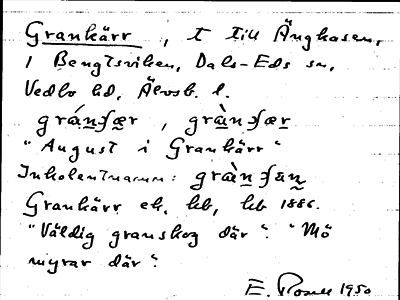 Grankärr, t till Ängkasen,
1 Bengtsviken, Dals-Eds sn,
Vedbo hd, Älvsb. l.
grán̲ʃæ̲r, gràn̲ʃær̲
"August i Grankärr"
Inkolentnamn: gràn̲ʃan̰
Grankärr ek. kb, kb 1886.
"Väldig granskog där". "Mö
myrar där".
E. 1950